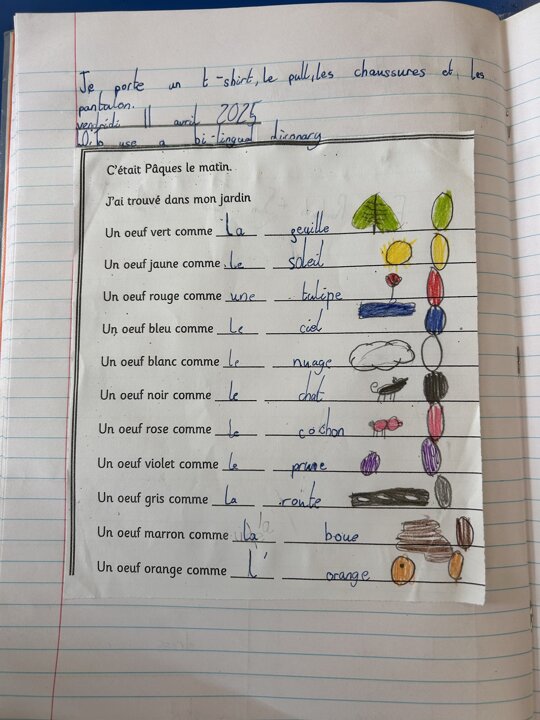 Je porte un t-shirt, le pull, les chaussures et les
pantalon.
vendredi 11 avril 2025
use a bi-lingual
C'était Pâques le matin.
J'ai trouvé dans mon jardin
Un oeuf vert comme la geuille
Un oeuf jaune comme le soleil
Un oeuf rouge comme une tulipe
Un oeuf bleu comme le ciel
Un oeuf blanc comme le nuage
Un oeuf noir comme le chat
Un oeuf rose comme le cochon
Un oeuf violet comme le prune
Un oeuf gris comme la route
Un oeuf marron comme la boue
Un oeuf orange comme l' orange